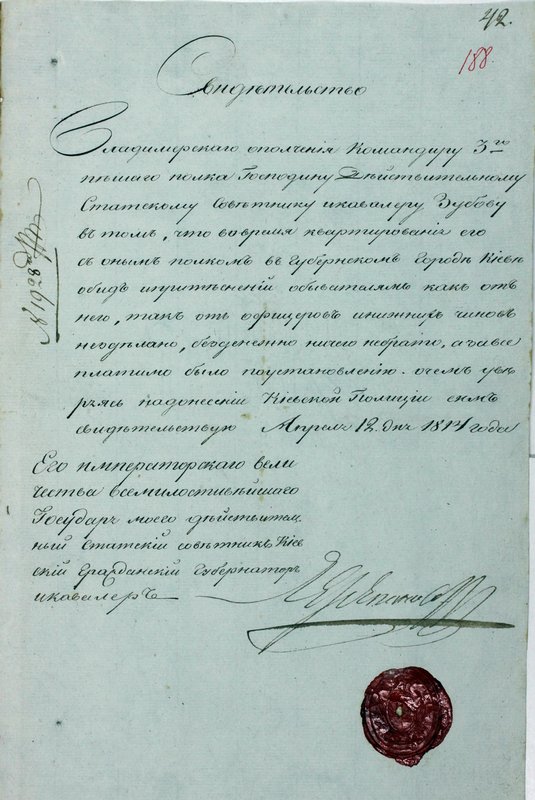 42.
188.
Свидѣтельство
Владимерскаго ополченія Командиру 3го
пѣшаго полка Господину Дѣйствительному
Статскому Совѣтнику икавалеру Зубову
въ томъ, что вовремя квартированія его
съ онымъ полкомъ въ Губернскомъ Городѣ Кіевѣ
обидъ ипритѣсненій обывателямъ какъ отъ
него, такъ отъ офицеровъ инижнихъ чиновъ
нездѣлано, безденежно ничего небрато, а завсе
платимо было поустановленію. очемъ увѣ
рясь падонесенію Кіевской Полиціи симъ
свидѣтельствую Апреля 12 дня 1814 года
Его императорскаго вели
чества всемилостивѣйшаго
Государя моего дѣйствител
ный Статскій совѣтникъ Кіев
скій Гражданскій Губернаторъ
икавалеръ
№ 1928